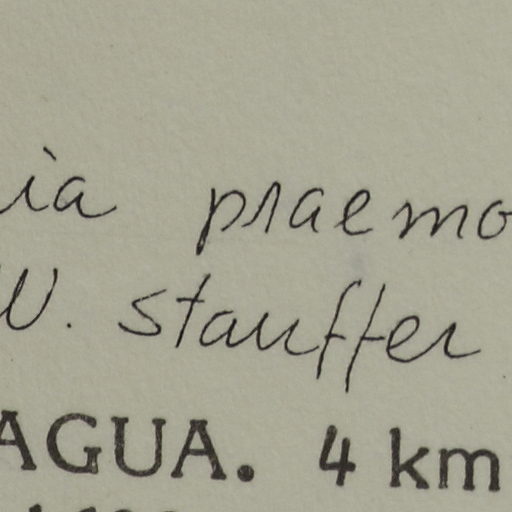 ia praemo
W. stauffer
AGUA. 4 km